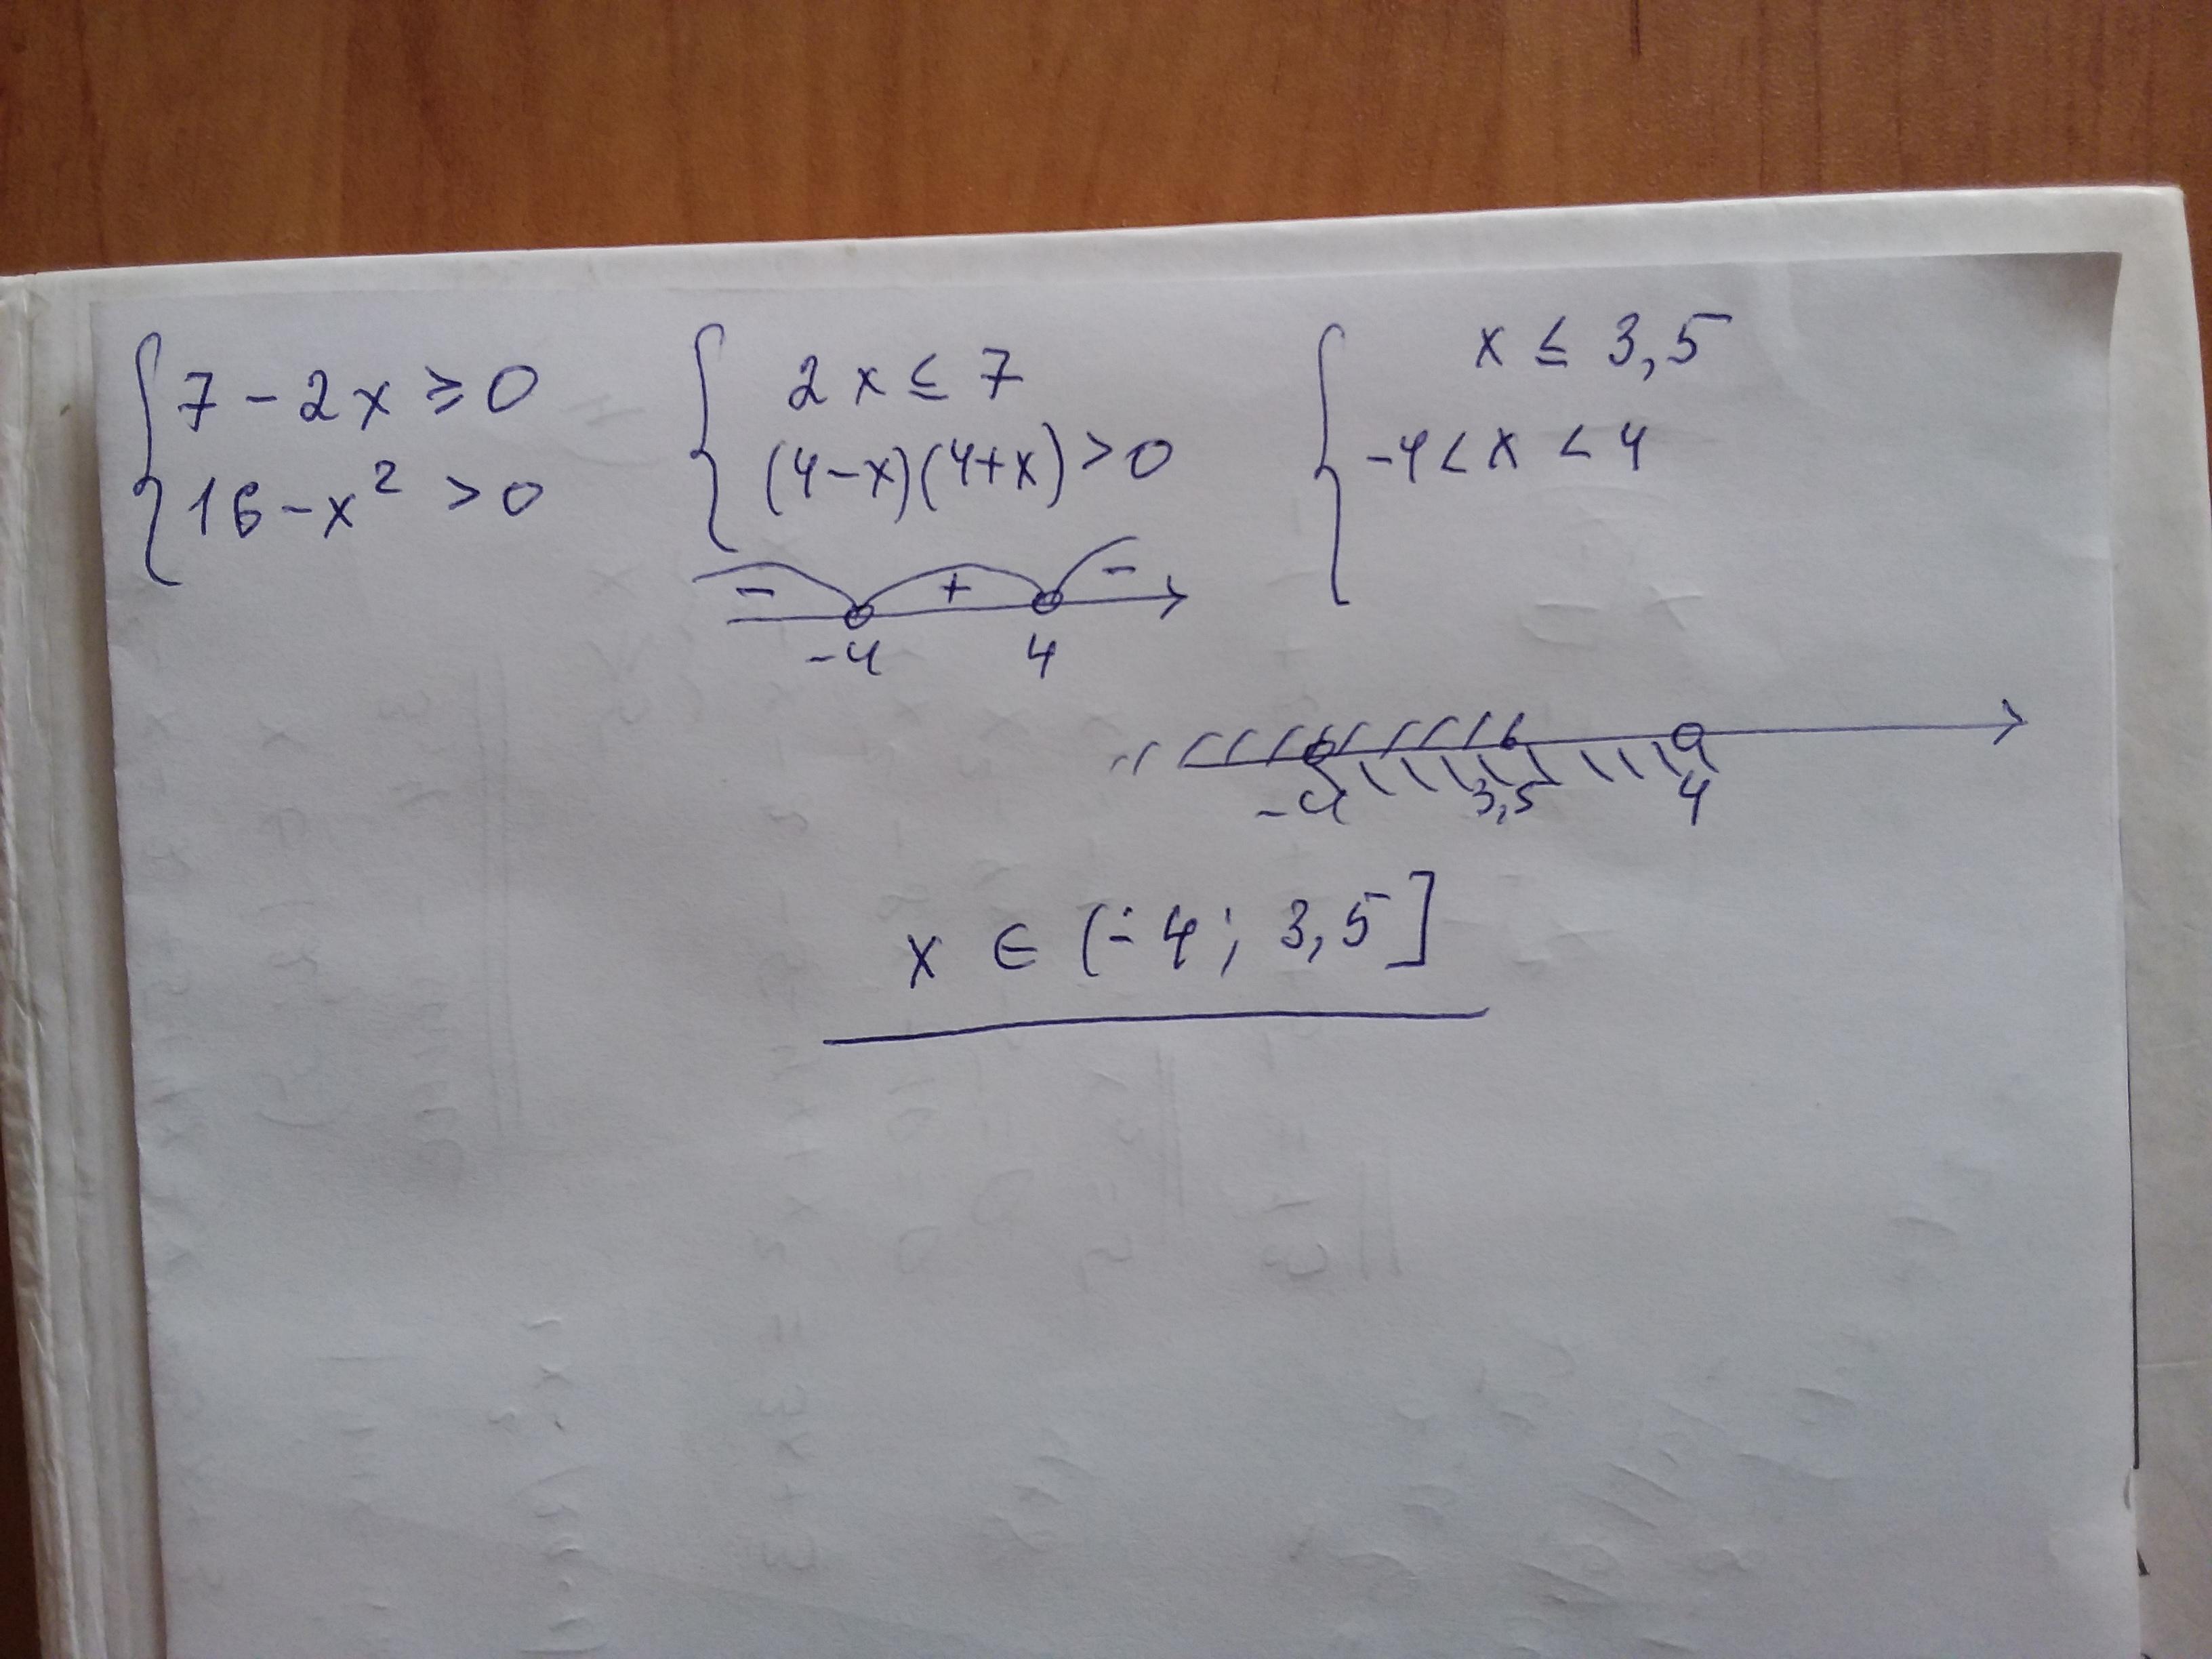 7 - 2x ≥ 0
16 - x² > 0
2x ≤ 7
(4-x)(4+x) > 0
- + -
-4 4
x ≤ 3,5
-4 < x < 4
-4 3,5 4
x ∈ (-4; 3,5]